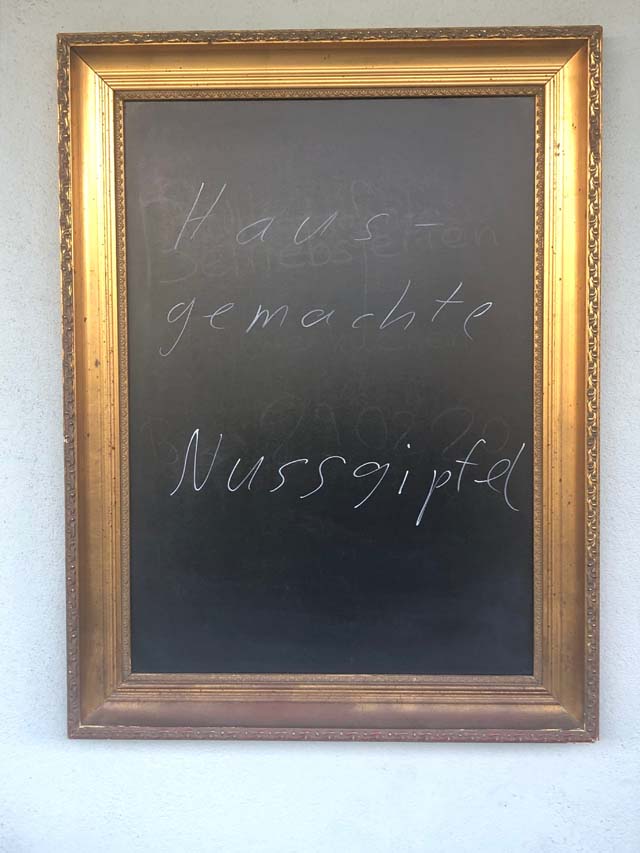 Haus-
gemachte
Nussgipfel